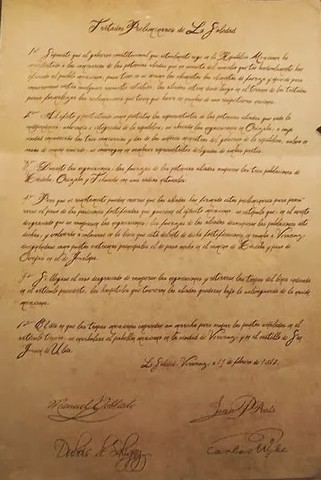 Tratados Preliminares de La Soledad
1º Supuesto que el gobierno constitucional que actualmente rige en la República Mexicana ha
manifestado a los comisarios de las potencias aliadas que no necesita del auxilio que tan benévolamente han
ofrecido al pueblo mexicano, pues tiene en sí mismo los elementos de fuerza y opinión para
conservarse contra cualquier revuelta intestina, los aliados entran desde luego en el terreno de los tratados
para formalizar las reclamaciones que tienen que hacer en nombre de sus respectivas naciones.
2º Al efecto y protestando como protestan los representantes de las potencias aliadas que nada
independencia, soberanía e integridad de la república, se abrirán las negociaciones en Orizaba, a cuya
ciudad concurrirán los tres comisarios y dos de los señores ministros del gobierno de la república, salvo el
caso de común acuerdo, se convenga en nombrar representantes delegados de ambas partes.
3º Durante las negociaciones, las fuerzas de las potencias aliadas ocuparán las tres poblaciones de
Córdoba, Orizaba y Tehuacán con sus radios naturales.
4º Para que ni remotamente pueda creerse que los aliados han firmado estos preliminares para
el paso de las posiciones fortificadas que guarnece el ejército mexicano, se estipula que en el evento
desgraciado que se rompiesen las negociaciones, las fuerzas de los aliados desocuparán las poblaciones
y volverán a colocarse en la línea que está delante de dichas fortificaciones, en rumbo a Veracruz,
el de Paso Ancho en el camino de Córdoba y paso de
Ovejas en el de Jalapa.
5º Si llegase el caso desgraciado de romperse las negociaciones y retirarse las tropas
artículo precedente, los hospitales que tuvieren los aliados quedarán bajo la salvaguardia de la nación
mexicana.
6º El día en que las tropas
artículo tercero, se enarbolará el pabellón mexicano en la ciudad de Veracruz y en el castillo de San
Juan de Ulúa.
La Soledad, Veracruz, a 19 de febrero de 1862.
Manuel Doblado
Juan Prim
Dubois de Saligny
Carlos Wyke